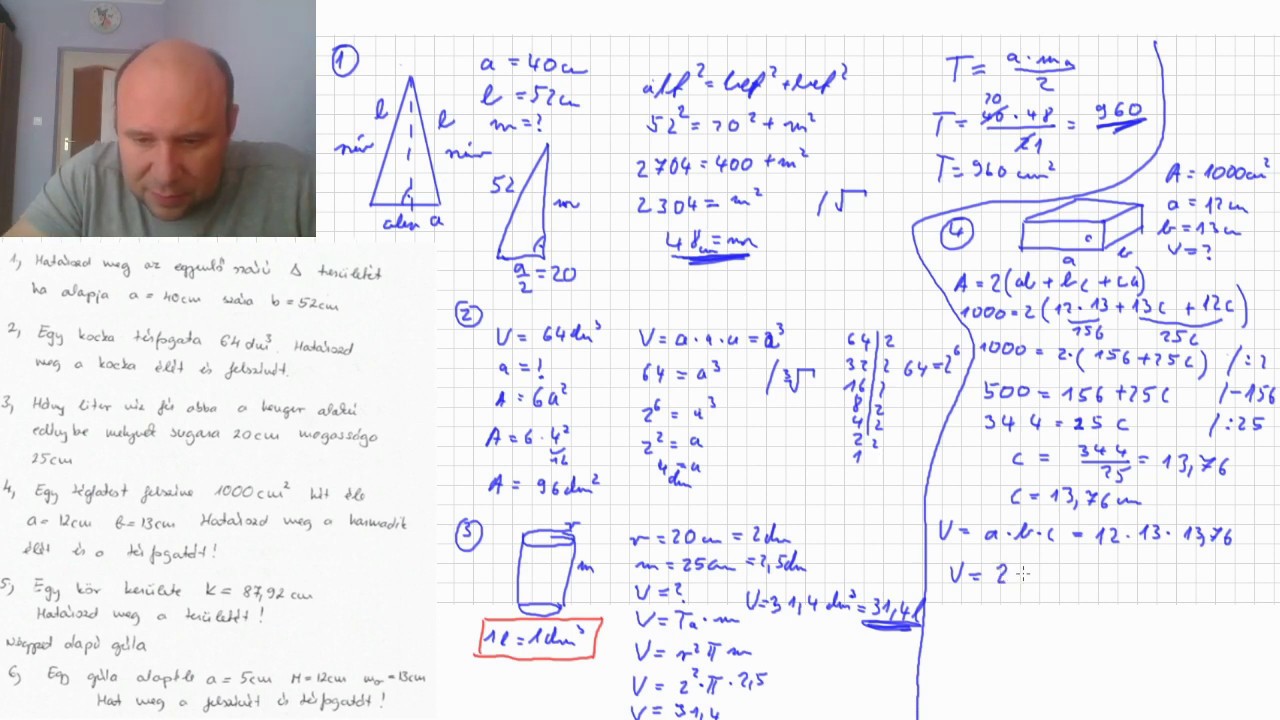 1, Határozd meg az egyenlő szárú Δ területét
ha alapja a = 40cm szára b = 52cm
2, Egy kocka térfogata 64 dm³. Határozd
meg a kocka élét és felszínét.
3, Hány liter víz fér abba a henger alakú
edénybe melynek sugara 20cm magassága
25cm
4, Egy téglatest felszíne 1000 cm² két éle
a = 12cm b = 13cm Határozd meg a harmadik
élét és a térfogatát!
5, Egy kör kerülete K = 87,92 cm
Határozd meg a területét!
négyzet alapú gúla
6, Egy gúla alapéle a = 5cm M = 12cm = 13cm
Hat meg a felszínét és térfogatát!
1
b
b
szár
szár
alap a
a = 40cm
b = 52cm
m = ?
52
m
a/2 = 20
átf² = bef² + bef²
52² = 20² + m²
2704 = 400 + m²
2304 = m² /√
48cm = m
T = a · mₐ / 2
20
T = 40 · 48 / 2 1 = 960
T = 960 cm²
2
V = 64 dm³
a = ?
A = 6a²
A = 6 · 4²
16
A = 96 dm²
V = a · a · a = a³
64 = a³ /∛
2⁶ = a³
2² = a
4 = a
dm
64 | 2
32 | 2
16 | 2
8 | 2
4 | 2
2 2
1
64 = 2⁶
3
r
m
1l = 1dm³
r = 20cm = 2dm
m = 25cm = 2,5dm
V = ?
V = Tₐ · m
V = r² π m
V = 2² · π · 2,5
V = 31,4
V = 31,4 dm³ = 31,4 l
4
c
a
b
A = 1000cm²
a = 12cm
b = 13cm
V = ?
A = 2(ab + bc + ca)
1000 = 2(12 · 13 + 13c + 12c)
156
25c
1000 = 2 · (156 + 25c) /:2
500 = 156 + 25c /-156
344 = 25c /:25
c = 344/25 = 13,76
c = 13,76cm
V = a · b · c = 12 · 13 · 13,76
V = 2